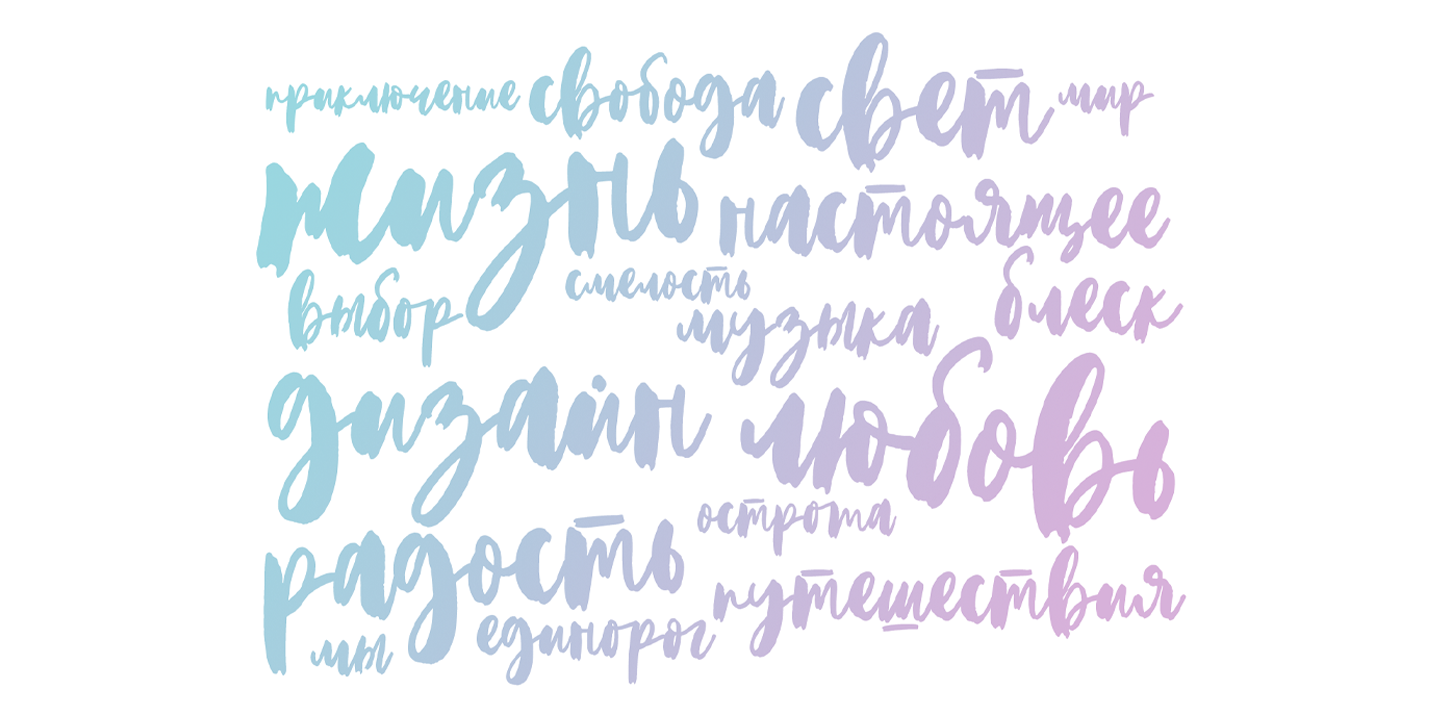 приключение свобода свет мир
жизнь настоящее
выбор смелость музыка блеск
дизайн любовь
радость острота
мы единорог путешествия